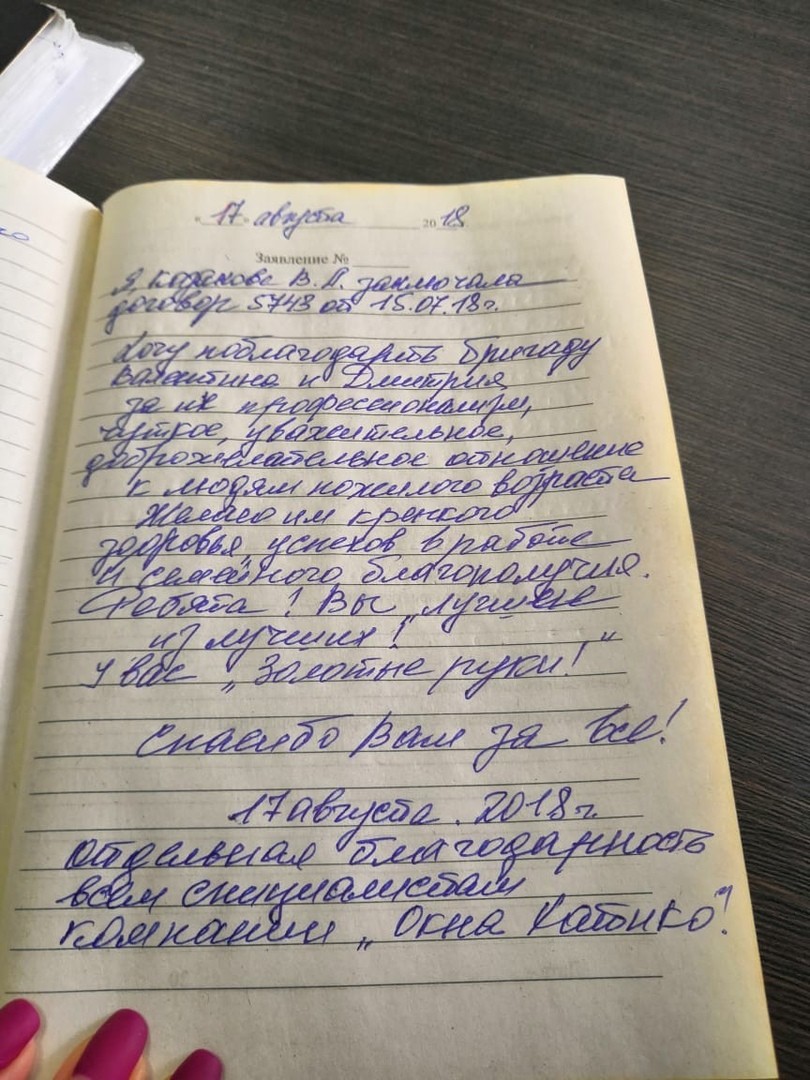 « 17 » августа 2018
Заявление №
Я, В. А. заключала
договор 5743 от 15.07.18г.
Хочу поблагодарить бригаду
Валентина и Дмитрия
за их профессионализм,
чуткое, уважительное,
доброжелательное отношение
к людям пожилого возраста
Желаю им крепкого
здоровья, успехов в работе
и семейного благополучия.
Ребята! Вы „лучшие
из лучших!"
У вас „Золотые руки!"
Спасибо Вам за всё!
17 августа. 2018г.
Отдельная благодарность
всем специалистам
компании „Окна Катюко"!